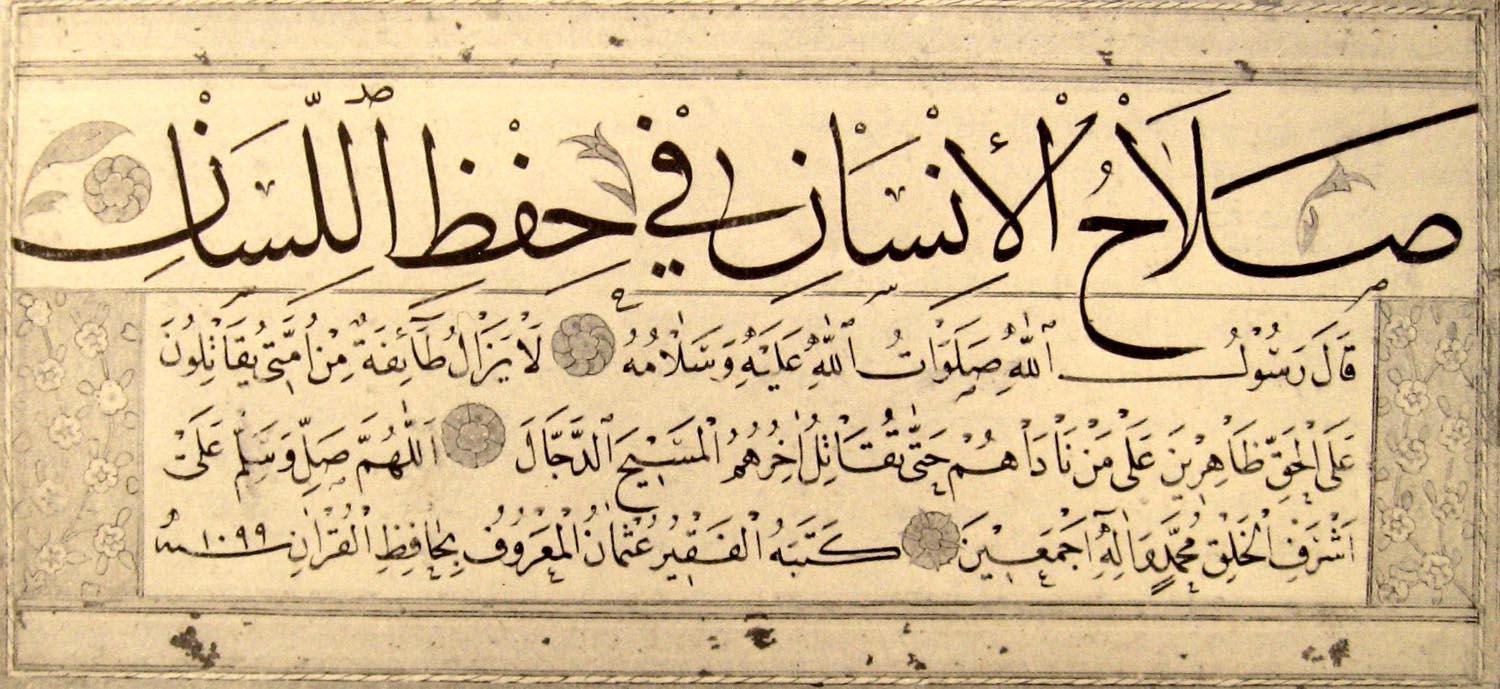 صَلَاحُ الْإِنْسَانِ فِي حِفْظِ اللِّسَانِ
قَالَ رَسُوْلُ اللهِ صَلَوَاتُ اللهِ عَلَيْهِ وَسَلَامُهُ لَا يَزَالُ طَائِفَةٌ مِنْ اُمَّتِي يُقَاتِلُونَ
عَلَى الْحَقِّ ظَاهِرِينَ عَلَى مَنْ نَادَاهُمْ حَتَّى يُقَاتِلَ اٰخِرُهُمُ الْمَسِيْحَ الدَّجَّالَ اَللّٰهُمَّ صَلِّ وَسَلِّمْ عَلَى
اَشْرَفِ الْخَلْقِ مُحَمَّدٍ وَاٰلِهِ اَجْمَعِيْنَ كَتَبَهُ الْفَقِيْرُ عُثْمَانُ الْمَعْرُوفُ بِحَافِظِ الْقُرْاٰنِ سنة ١٠٩٩